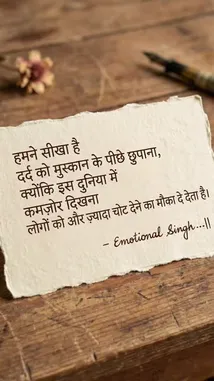 हमने सीखा है
दर्द को मुस्कान के पीछे छुपाना,
क्योंकि इस दुनिया में
कमज़ोर दिखना
लोगों को और ज़्यादा चोट देने का मौका दे देता है।
– Emotional Singh...||